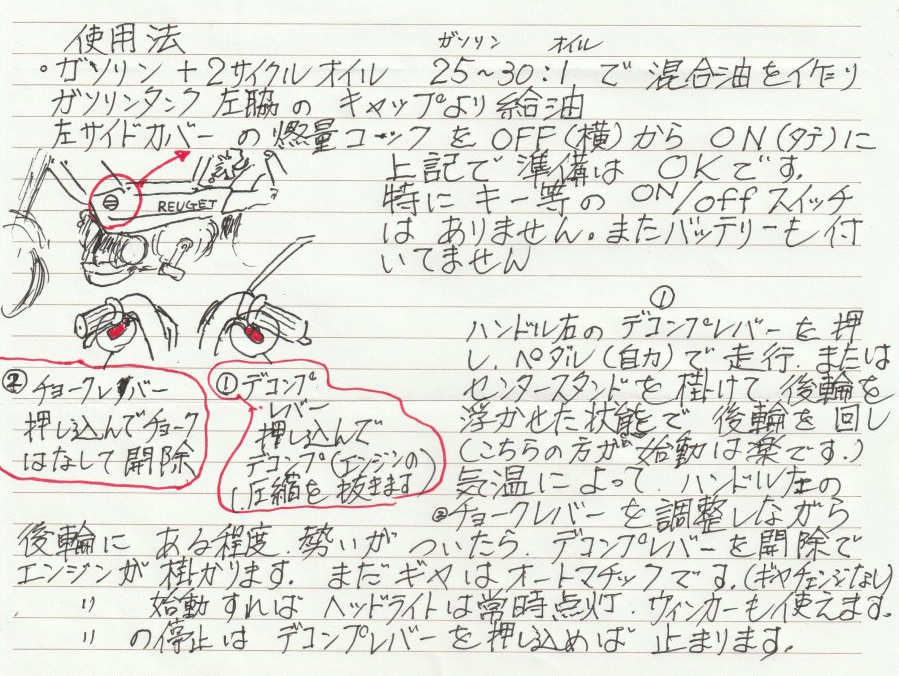 使用法
ガソリン オイル
・ガソリン+2サイクルオイル 25~30:1 で混合油を作り
ガソリンタンク左脇のキャップより給油
左サイドカバーの燃量コックをOFF(横)からON(タテ)に
上記で準備はOKです。
REUGET
特にキー等のON/offスイッチ
はありません。またバッテリーも付
いてません
①
ハンドル右のデコンプレバーを押
し、ペダル(自力)で走行、または
センタースタンドを掛けて後輪を
浮かせた状態で後輪を回し
(こちらの方が始動は楽です。)
気温によって、ハンドル左の
②チョークレバーを調整しながら
②チョークレバー
押し込んでチョーク
はなして開除
①デコンプ
レバー
押し込んで
デコンプ(エンジンの)
(圧縮を抜きます)
後輪にある程度、勢いがついたら、デコンプレバーを開除で
エンジンが掛かります。まだギヤはオートマチックです。(ギヤチェンジなし)
〃 始動すればヘッドライトは常時点灯、ウィンカーも使えます。
〃 の停止はデコンプレバーを押し込めば止まります。